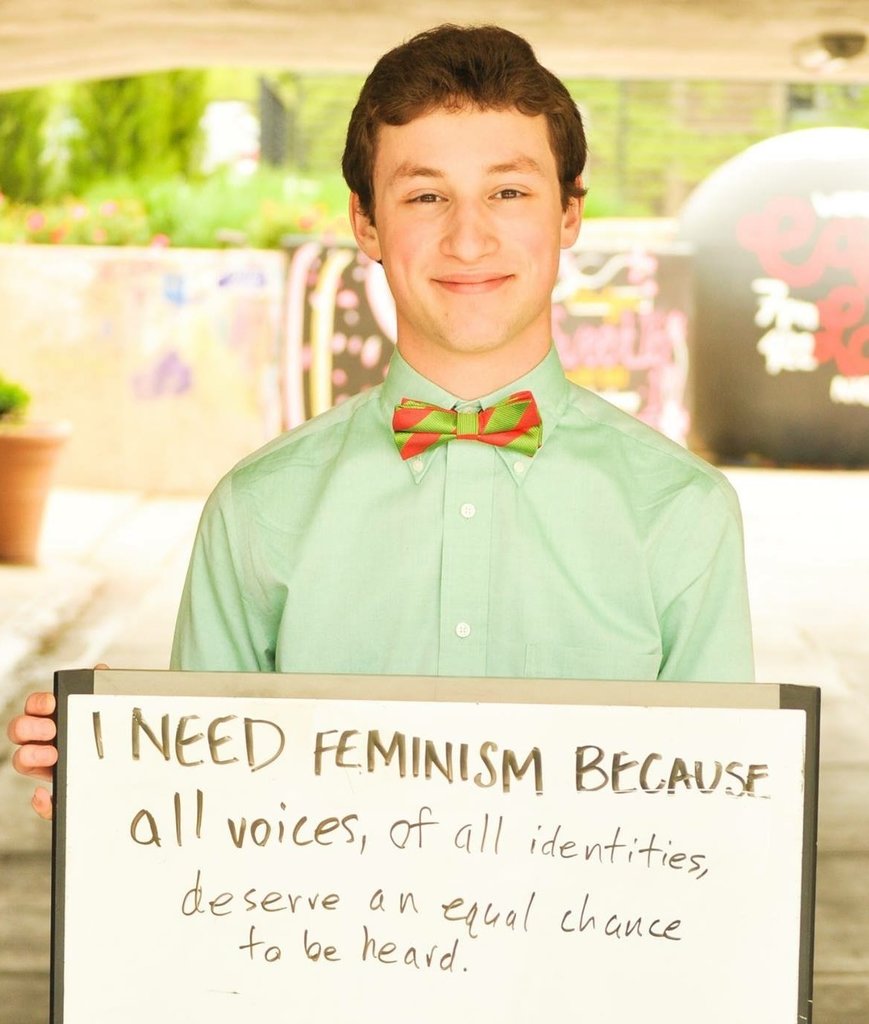 I NEED FEMINISM BECAUSE
all voices, of all identities,
deserve an equal chance
to be heard.